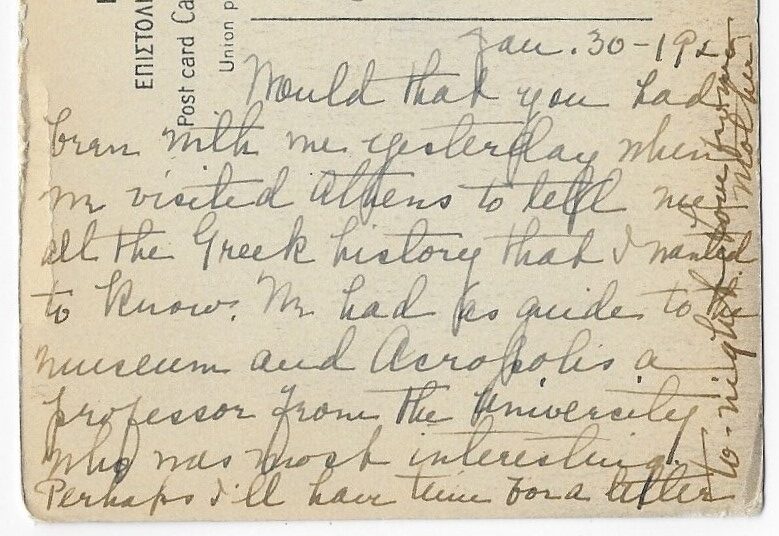 ΕΠΙΣΤΟΛ
Post card Ca
Union p
Jan. 30-192
Would that you had
been with me yesterday when
we visited Athens to tell me
all the Greek history that I wanted
to know. We had as guide to
museum and Acropolis a
professor from the University
who was most interesting.
Perhaps I'll have time for a letter
to-night. Love from
Mother